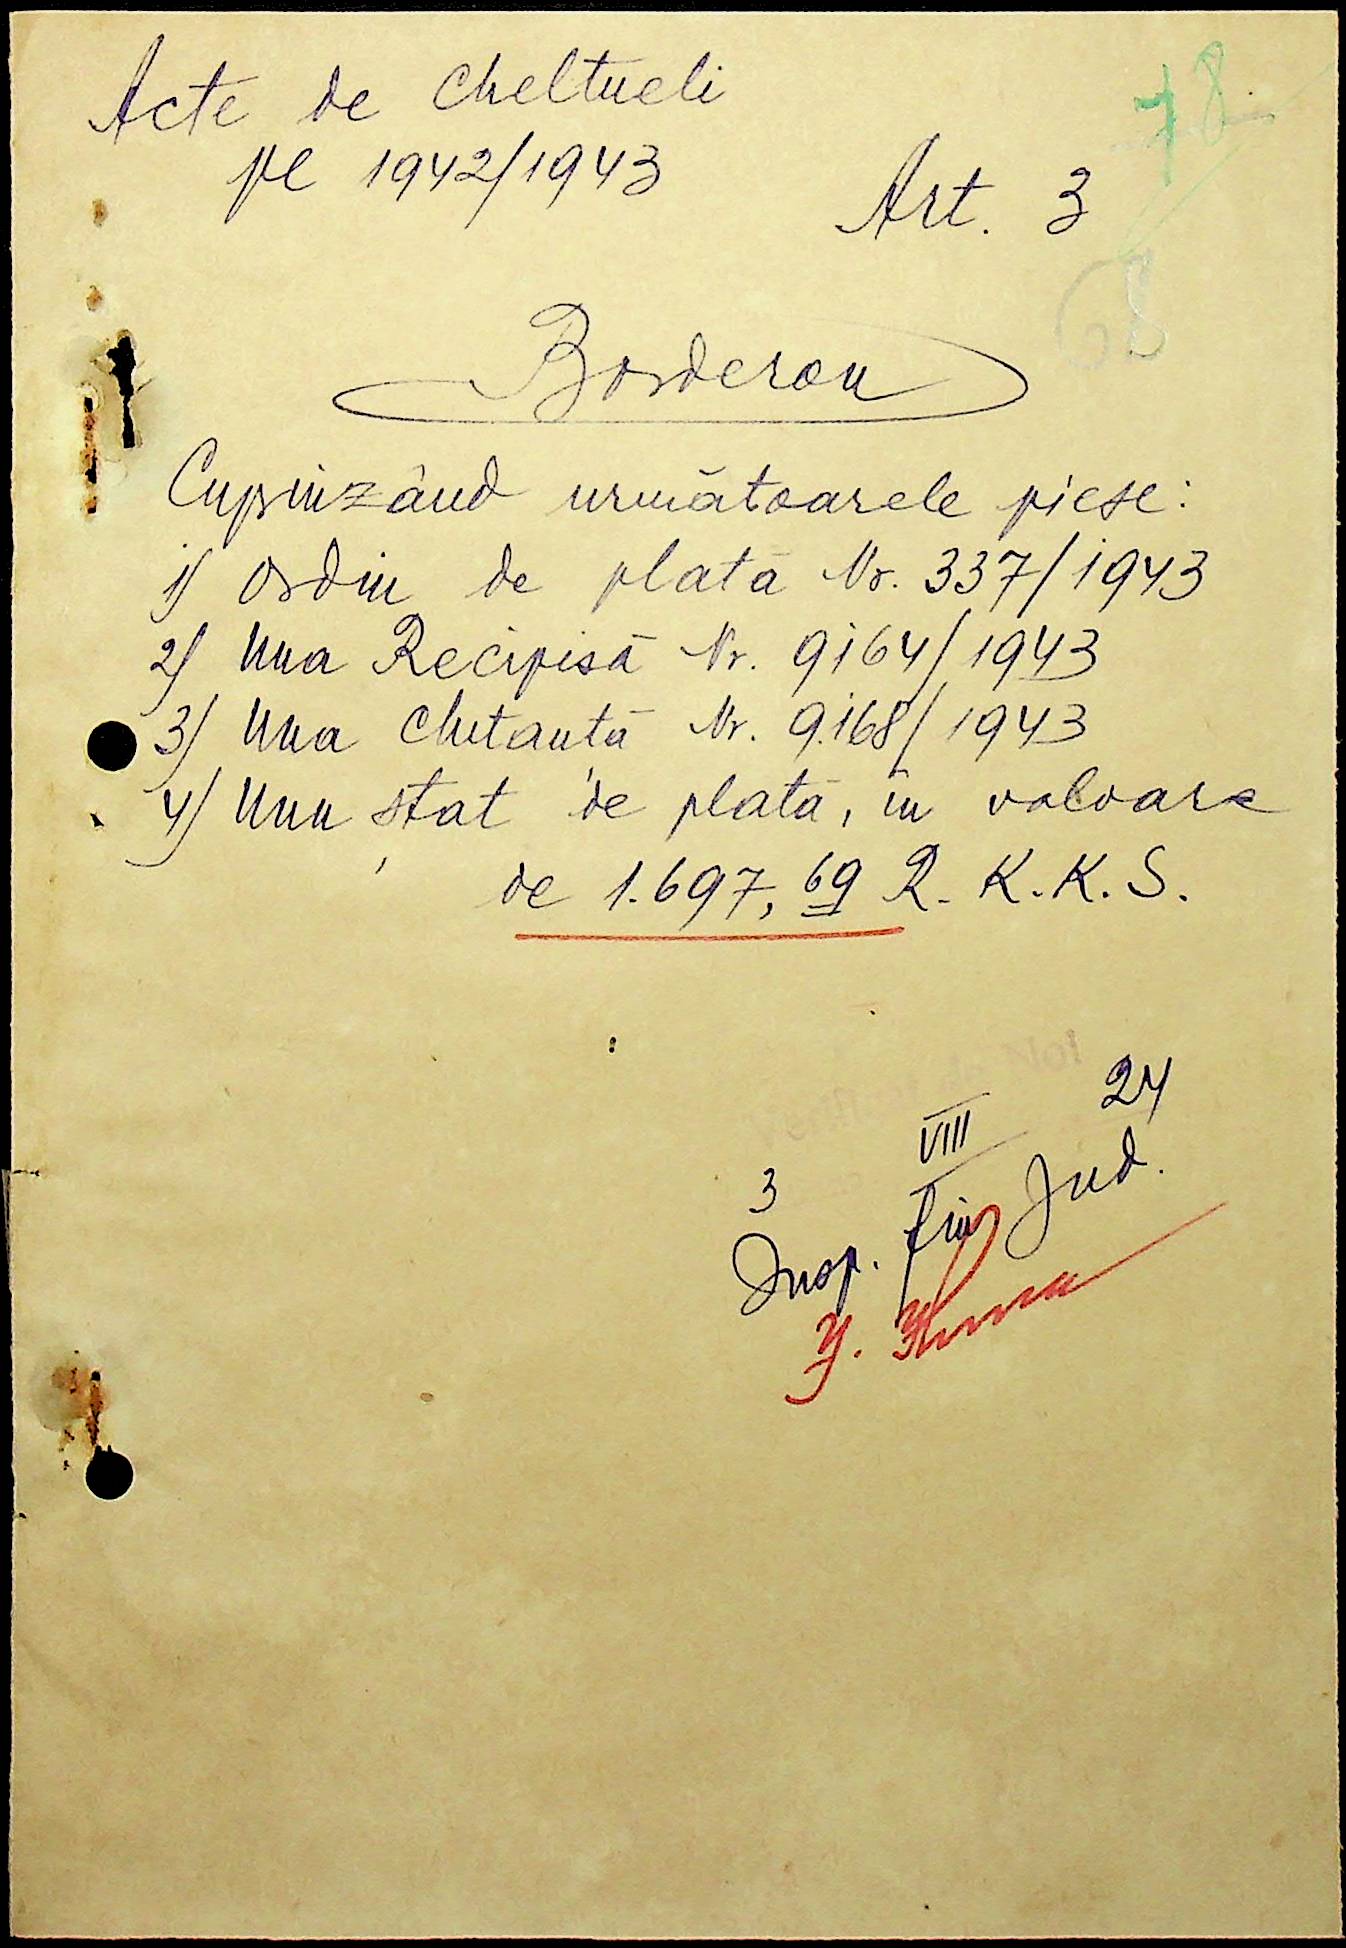 Acte de Cheltueli
pe 1942/1943
78
Art. 3
Borderou
Cuprinzând următoarele piese:
1) Ordin de plată Nr. 337/1943
2) Una Recipisă Nr. 9164/1943
3) Una Chitanță Nr. 9.168/1943
4) Unu ștat de plată, în valoare
de 1.697,69 R. K. K. S.
3 VIII 24
Insp. fin Jud.